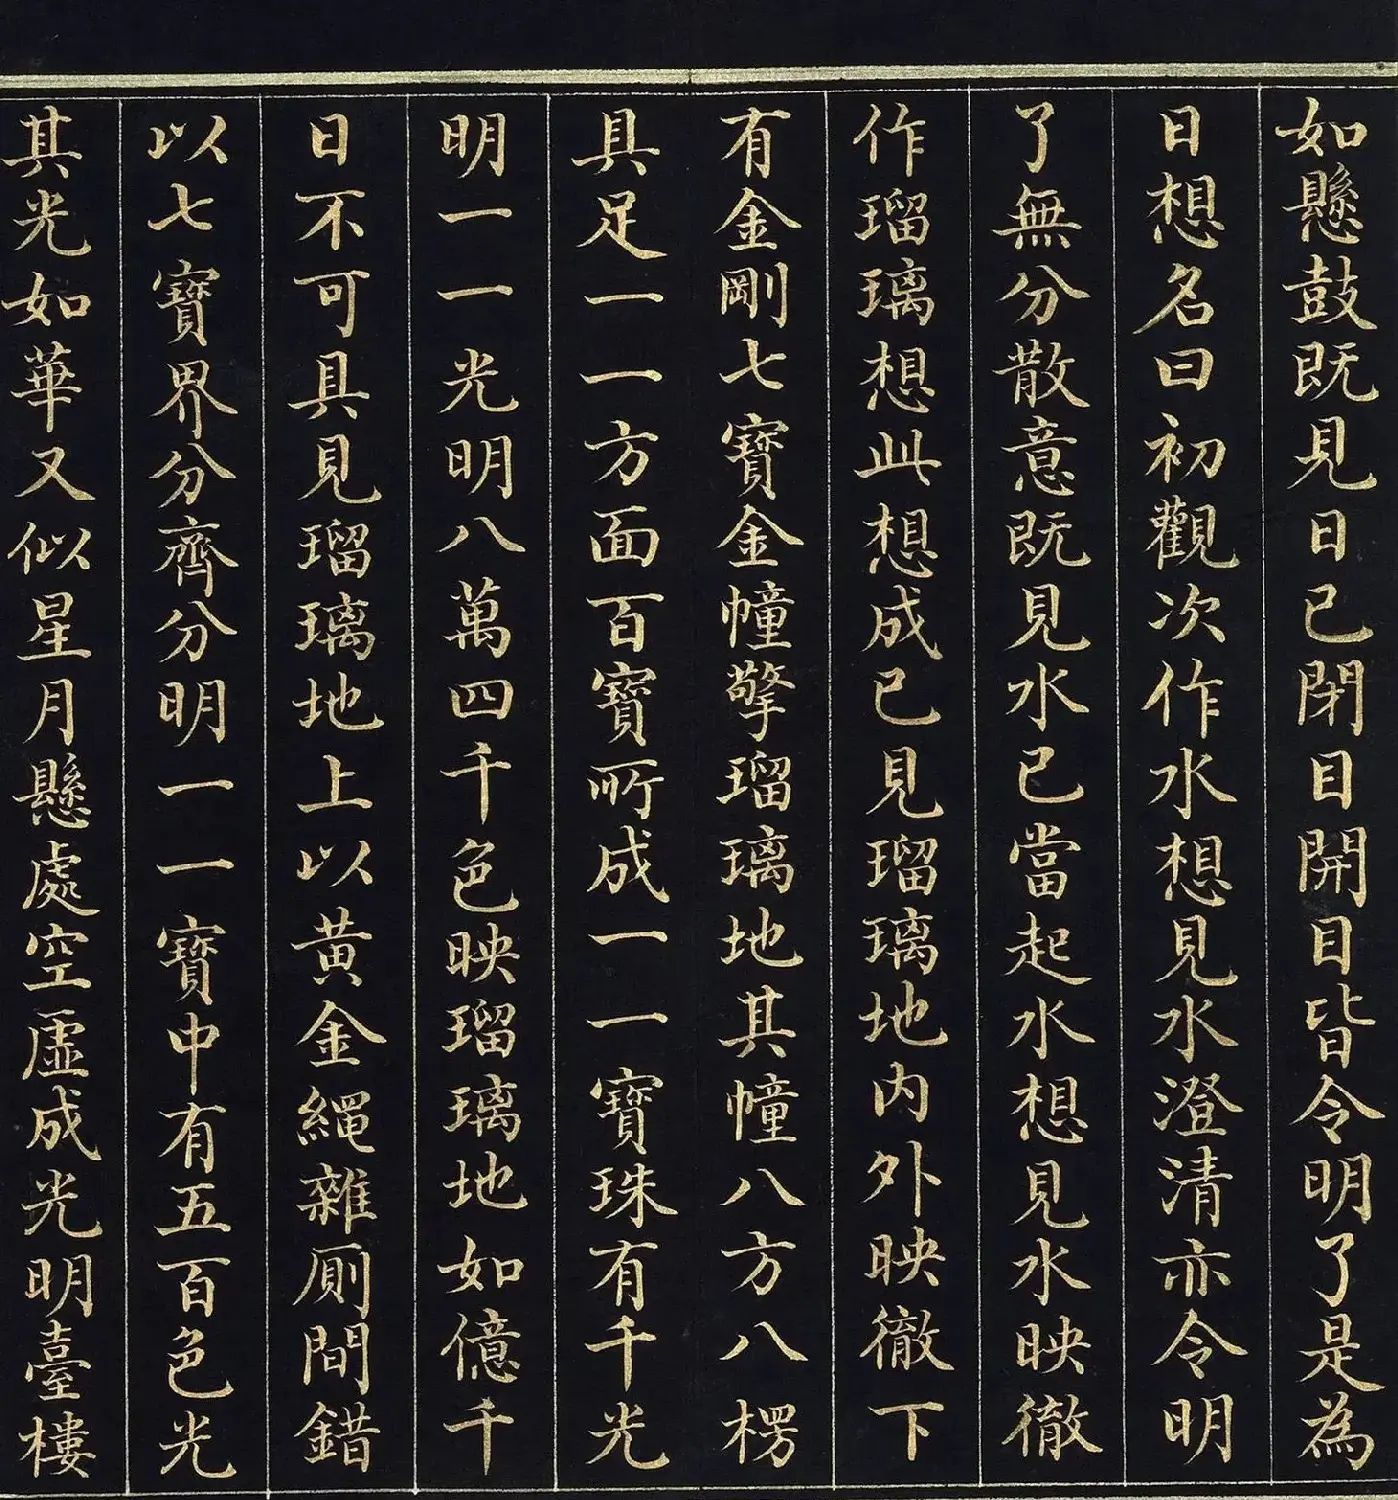 如懸鼓既見日已閉目開目皆令明了是為
日想名曰初觀次作水想見水澄清亦令明
了無分散意既見水已當起水想見水映徹
作瑠璃想此想成已見瑠璃地內外映徹下
有金剛七寶金幢擎瑠璃地其幢八方八楞
具足一一方面百寶所成一一寶珠有千光
明一一光明八萬四千色映瑠璃地如億千
日不可具見瑠璃地上以黃金繩雜厠間錯
以七寶界分齊分明一一寶中有五百色光
其光如華又似星月懸處空虛成光明臺樓